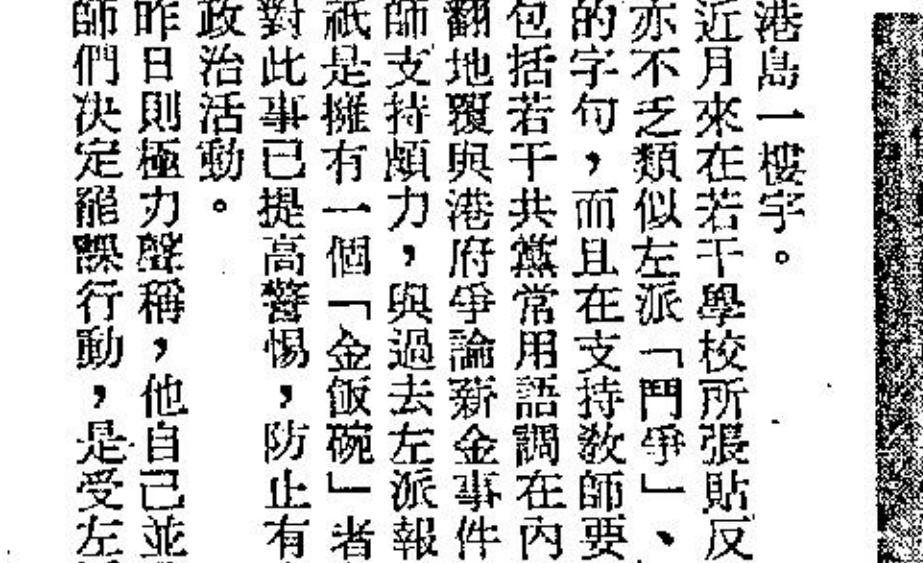 港島一樓宇。
近月來在若干學校所張貼反
亦不乏類似左派「鬥爭」、
的字句，而且在支持敎師要
包括若干共黨常用語調在內
翻地覆與港府爭論薪金事件
師支持頗力，與過去左派報
祇是擁有一個「金飯碗」者
對此事已提高警惕，防止有
政治活動。
昨日則極力聲稱，他自己並
師們決定罷課行動，是受左